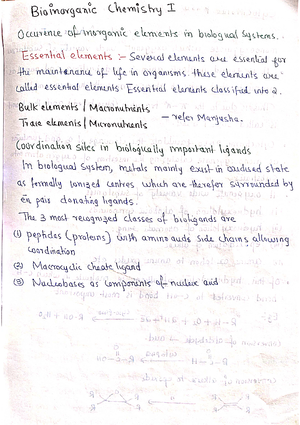 Bioinorganic Chemistry I
Occurence of inorganic elements in biological systems.
Essential elements :- Several elements are essential for
the maintenance of life in organisms. these elements are
called essential elements. Essential elements classified into 2.
Bulk elements / Macronutrients
Trace elements / Micronutrients
- refer Manjusha.
Coordination sites in biologically important ligands
In biological system, metals mainly exist in oxidised state
as formally ionized centres which are therefor surrounded by
e⁻s pair donating ligands.
The 3 most recognized classes of bioligands are
(1) peptides (proteins) with amino acids side chains allowing
coordination
(2) Macrocyclic chelate ligand
(3) Nucleobases as components of nucleic acid